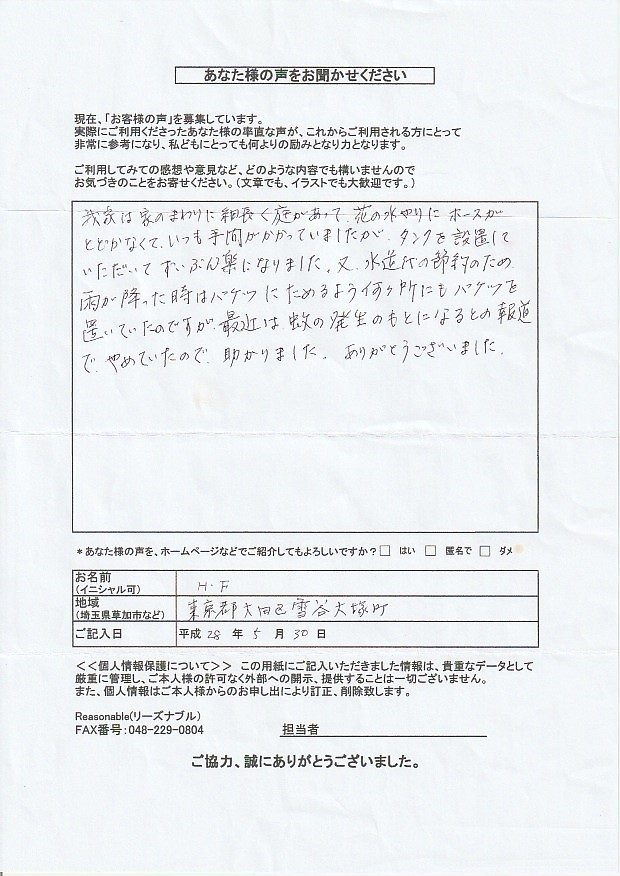 あなた様の声をお聞かせください
現在、「お客様の声」を募集しています。
実際にご利用くださったあなた様の率直な声が、これからご利用される方にとって
非常に参考になり、私どもにとっても何よりの励みとなり力となります。
ご利用してみての感想や意見など、どのような内容でも構いませんので
お気づきのことをお寄せください。(文章でも、イラストでも大歓迎です。)
我家は家のまわりに細長く庭があって、花の水やりにホースが
とどかなくて、いつも手間がかかっていましたが、タンクを設置して
いただいてずいぶん楽になりました。又、水道代の節約のため
雨が降った時はバケツにためるよう何ヶ所にもバケツを
置いていたのですが、最近は、蚊の発生のもとになるとの報道
で、やめていたので、助かりました。ありがとうございました。
*あなた様の声を、ホームページなどでご紹介してもよろしいですか?□ はい □ 匿名で □ ダメ
お名前
(イニシャル可) H・F
地域
(埼玉県草加市など) 東京都大田区雪谷大塚町
ご記入日 平成 28 年 5 月 30 日
<<個人情報保護について>> この用紙にご記入いただきました情報は、貴重なデータとして
厳重に管理し、ご本人様の許可なく外部への開示、提供することは一切ございません。
また、個人情報はご本人様からのお申し出により訂正、削除致します。
Reasonable(リーズナブル)
FAX番号:048-229-0804 担当者
ご協力、誠にありがとうございました。